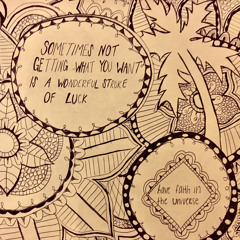 SOMETIMES NOT
GETTING WHAT YOU WANT
IS A WONDERFUL STROKE
OF LUCK
have faith in
the universe